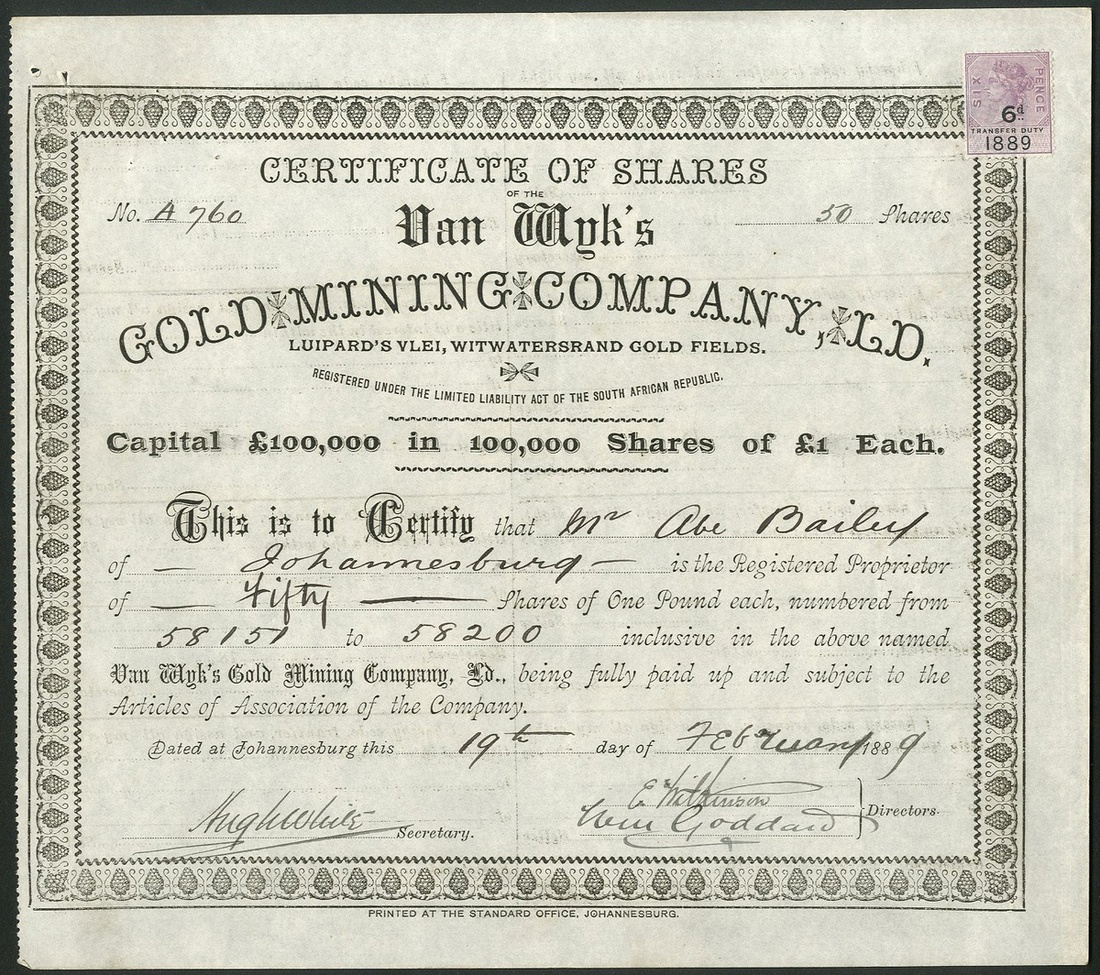 SIX PENCE
6d
TRANSFER DUTY
1889
CERTIFICATE OF SHARES
OF THE
No. A 760
50 Shares
Van Wyk's
GOLD MINING COMPANY, LD.
LUIPARD'S VLEI, WITWATERSRAND GOLD FIELDS.
REGISTERED UNDER THE LIMITED LIABILITY ACT OF THE SOUTH AFRICAN REPUBLIC.
Capital £100,000 in 100,000 Shares of £1 Each.
This is to Certify that Mr Abe Bailey
of — Johannesburg — is the Registered Proprietor
of — Fifty — Shares of One Pound each, numbered from
58151 to 58200 inclusive in the above named
Van Wyk's Gold Mining Company, Ld., being fully paid up and subject to the
Articles of Association of the Company.
Dated at Johannesburg this 19th day of February 1889
Hugh White Secretary.
E. Wilkinson
Wm Goddard
Directors.
PRINTED AT THE STANDARD OFFICE, JOHANNESBURG.